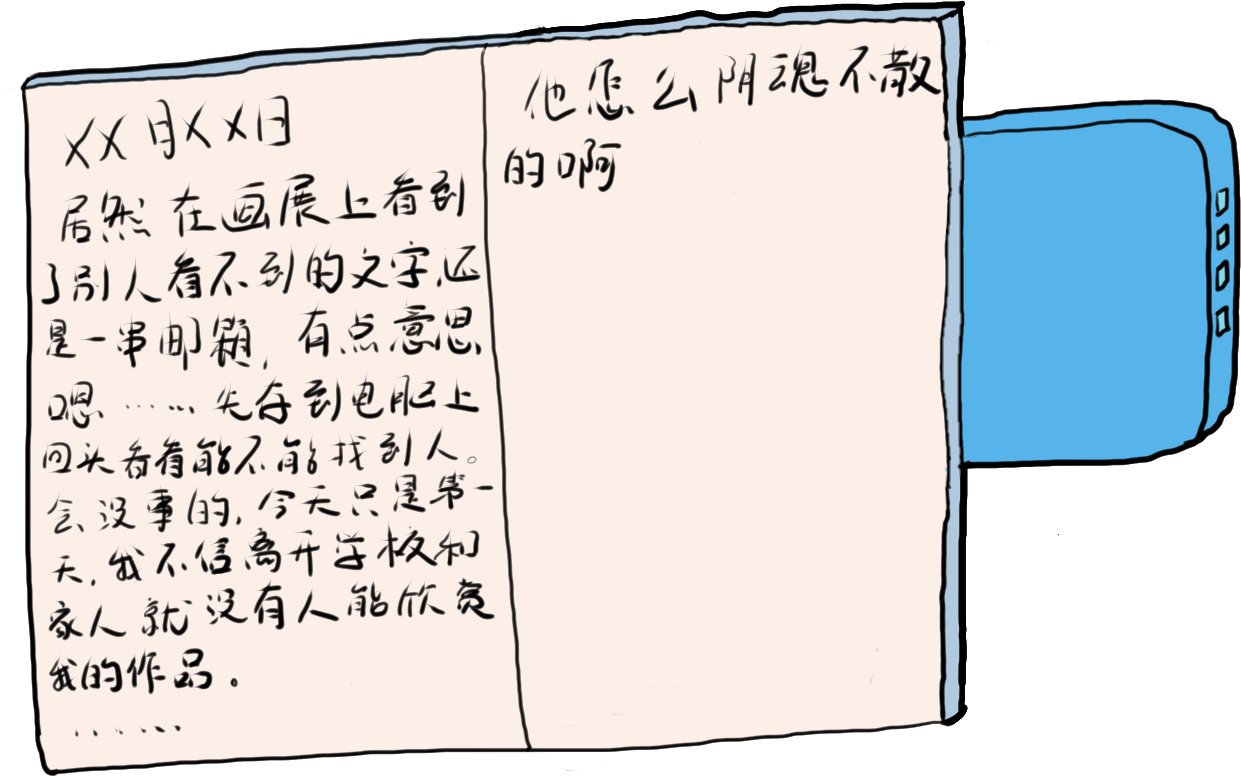 XX月XX日
居然在画展上看到
了别人看不到的文字,还
是一串邮箱,有点意思
嗯……先存到电脑上
回头看看能不能找到人。
会没事的,今天只是第一
天,我不信离开学校和
家人就没有人能欣赏
我的作品。
……
他怎么阴魂不散
的啊